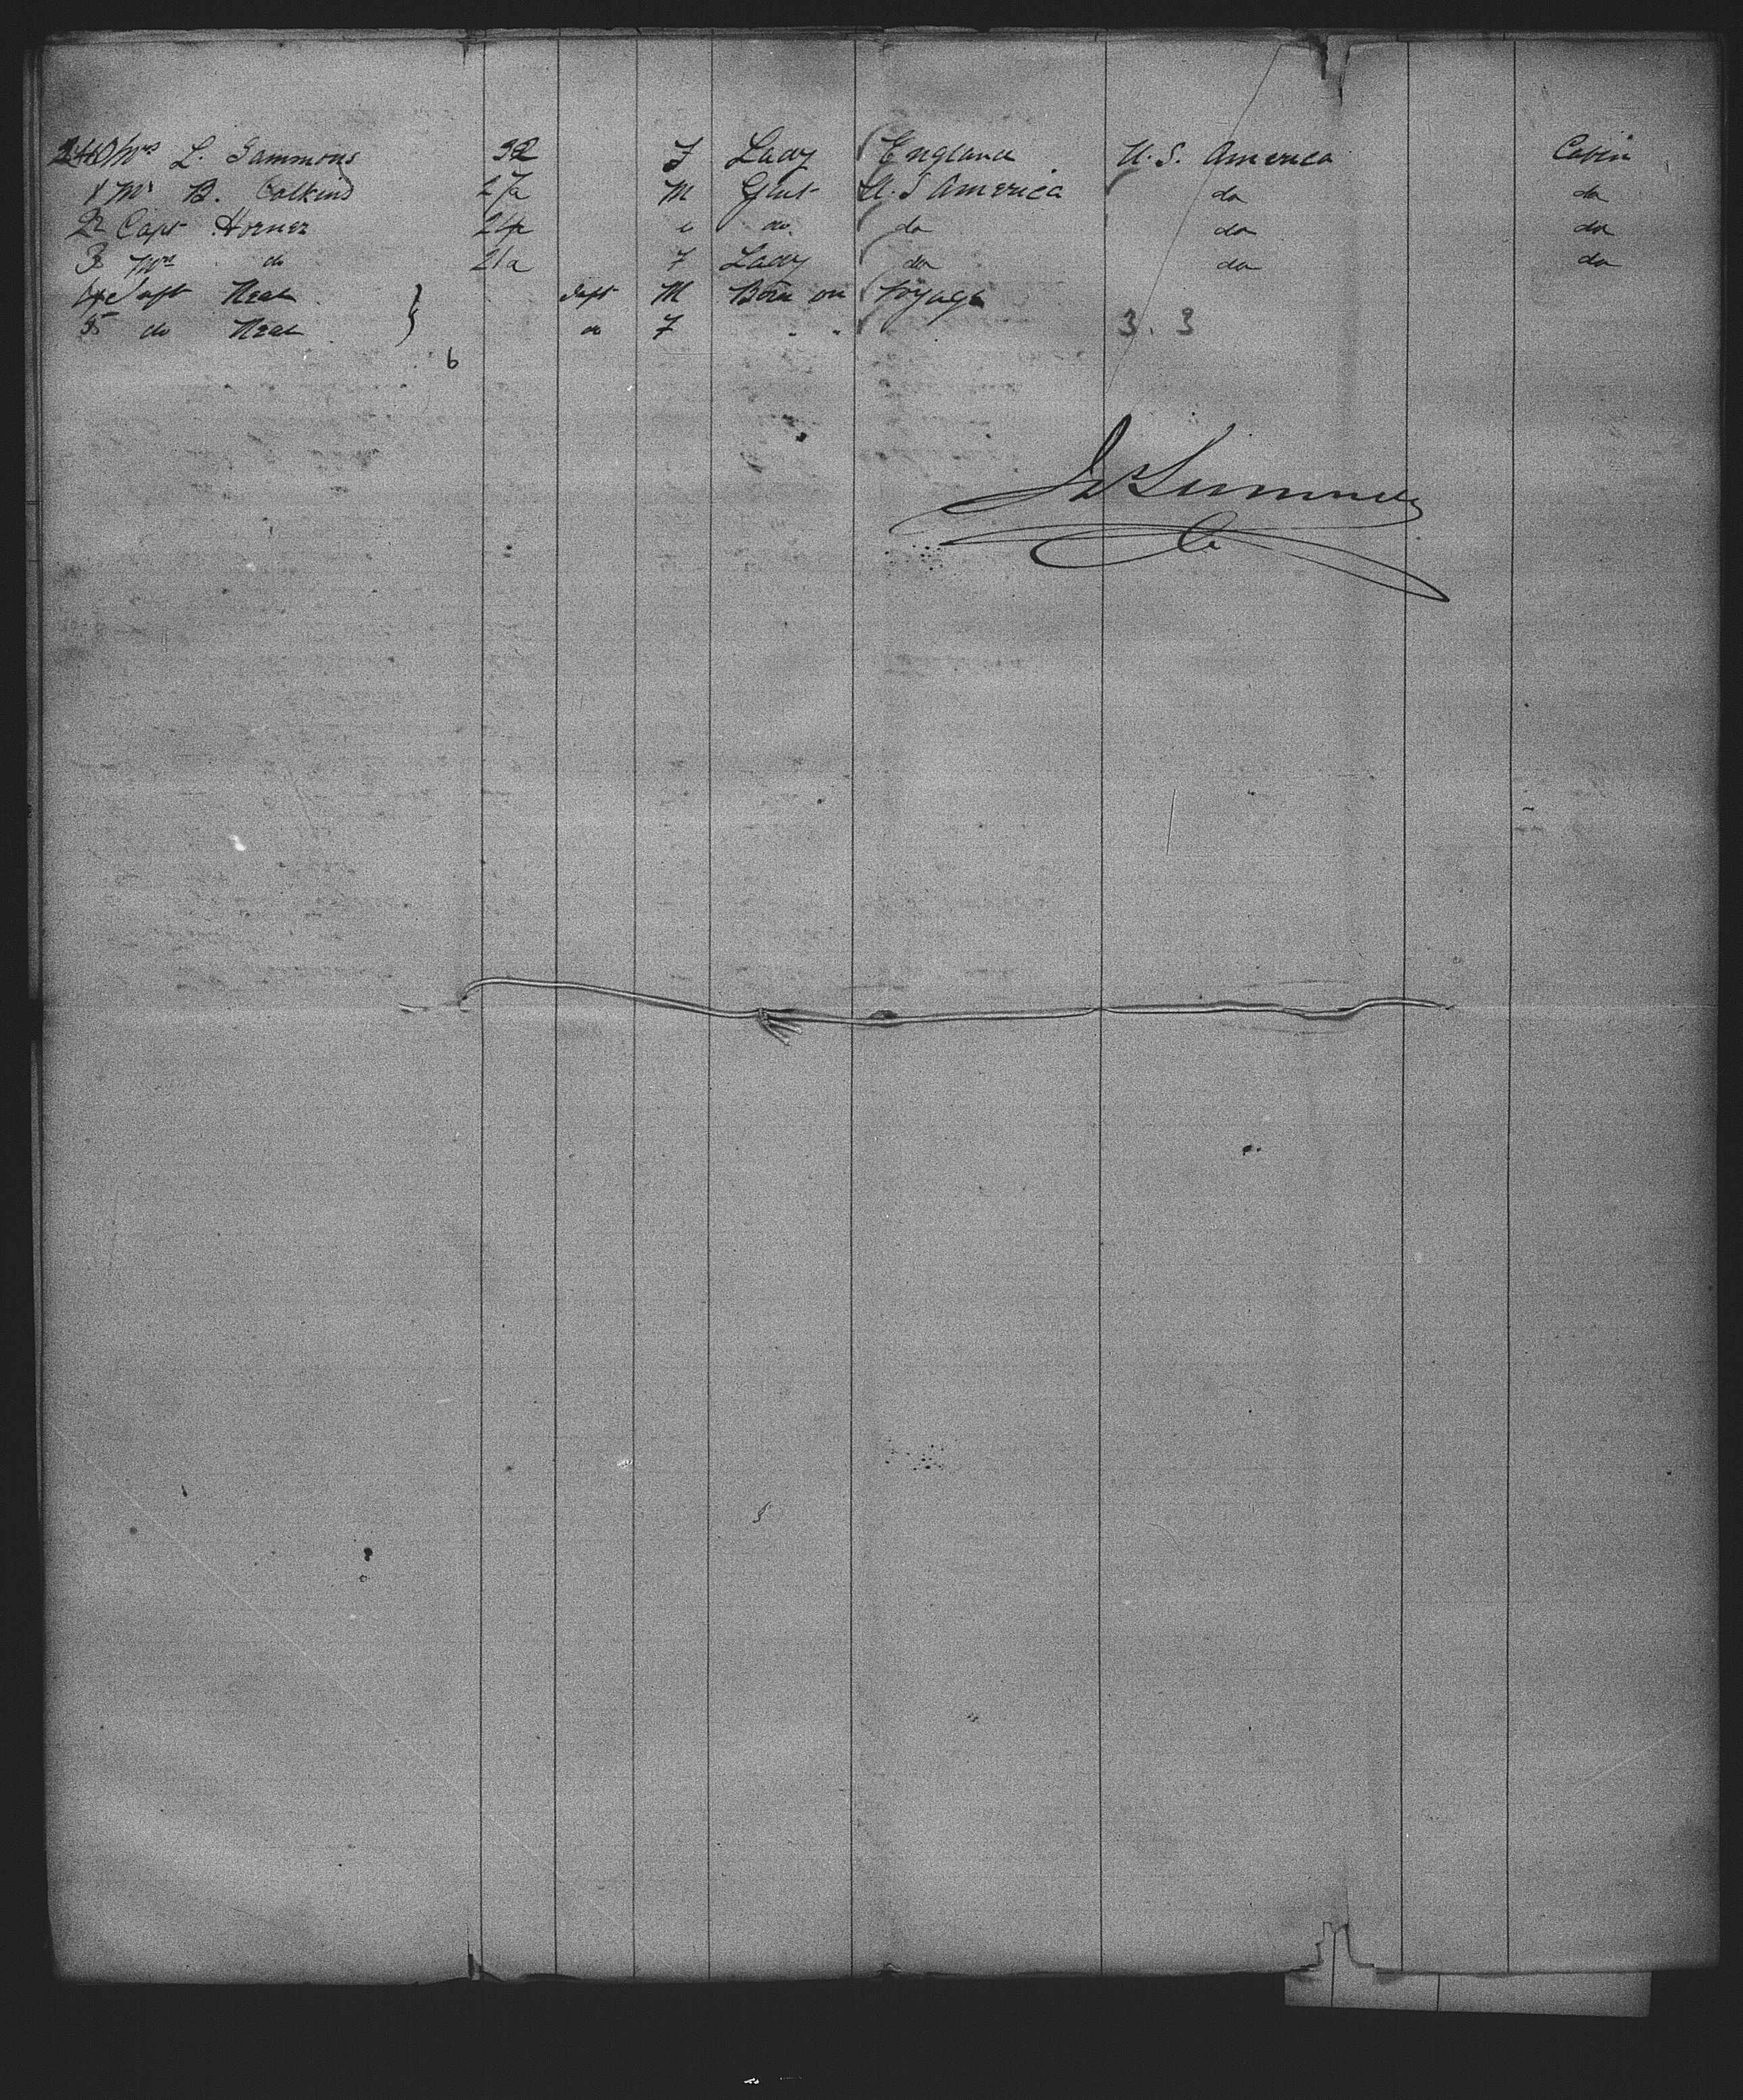 240 Mrs L. Sammons 32 F Lady England U. S. America Cabin
1 Mr B. Calkins 27 M Gent U. S America do do
2 Capt Horner 24 " do do do do
3 Mrs do 21 F Lady do do do
4 Inft Neal Inft M Born on Voyage
5 do Neal do F " " 3. 3
6